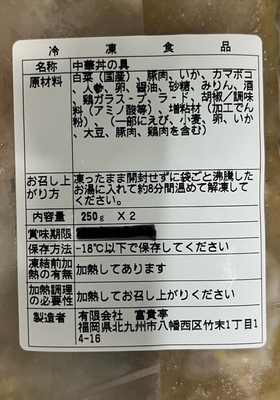 冷凍食品
名称 中華丼の具
原材料 白菜(国産)、豚肉、いか、カマボコ
、人参、卵、醤油、砂糖、みりん、酒
、鶏ガラス-プ、ラ-ド、胡椒/調味
料(アミノ酸等)、増粘材(加工でん
粉)、(一部にえび、小麦、卵、いか
、大豆、豚肉、鶏肉を含む)
お召し上がり方 凍ったまま開封せずに袋ごと沸騰した
お湯に入れて約8分間温めて解凍して
ください。
内容量 250g X 2
賞味期限
保存方法 -18℃以下で保存してください
凍結前加熱の有無 加熱してあります
加熱調理の必要性 加熱してお召し上がりください
製造者 有限会社 富貴亭
福岡県北九州市八幡西区竹末1丁目1
4-16